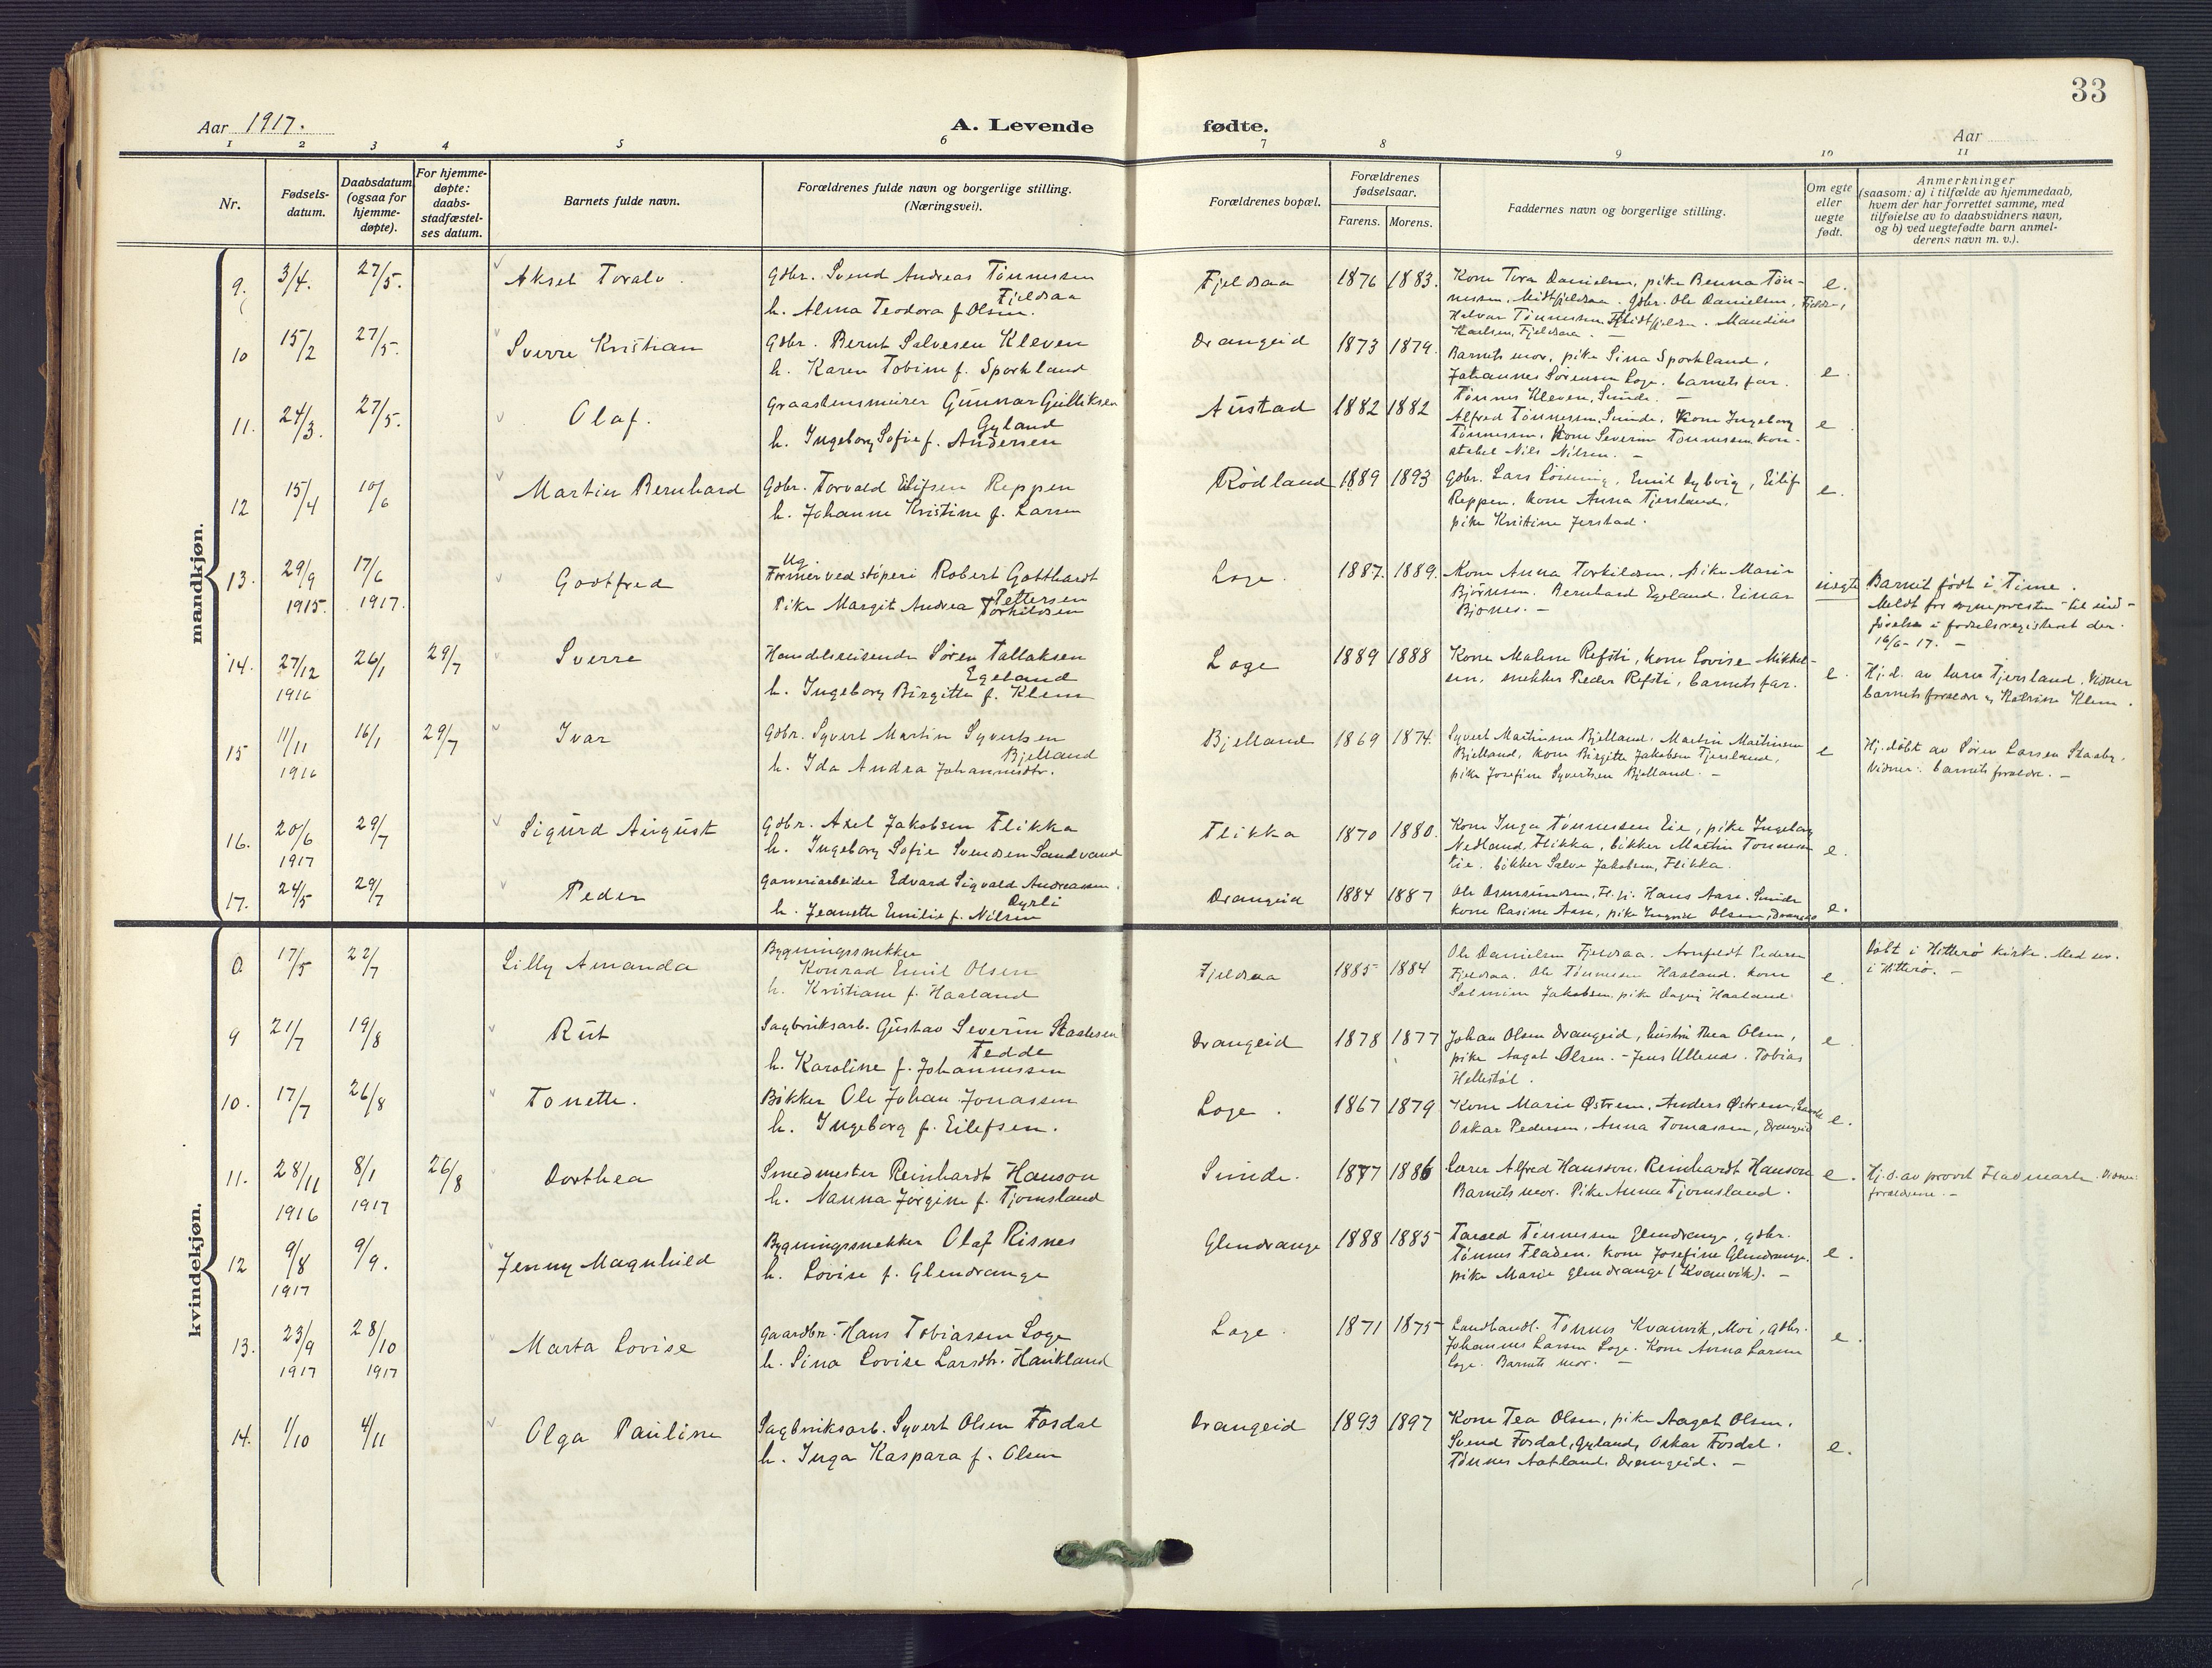 33
Aar 1917. A. Levende fødte. Aar
1 2 3 4 5 6 7 8 9 10 11
Nr.
Fødsels-
datum.
Daabsdatum
(ogsaa for
hjemme-
døpte).
For hjemme-
døpte:
daabs-
stadfæstel-
ses datum.
Barnets fulde navn.
Forældrenes fulde navn og borgerlige stilling.
(Næringsvei).
Forældrenes bopæl.
Forældrenes
fødselsaar.
Farens. Morens.
Faddernes navn og borgerlige stilling.
Om egte
eller
uegte
født.
Anmerkninger
(saasom: a) i tilfælde av hjemmedaab,
hvem der har forrettet samme, med
tilføielse av to daabsvidners navn,
og b) ved uegtefødte barn anmel-
derens navn m. v.).
mandkjøn.
9. 3/4. 27/5. Aksel Toralv.
Gdbr. Svend Andreas Tönnessen
Fjeldsaa
h. Alma Teodora f. Olsen.
Fjeldsaa 1876 1883.
Kone Tora Danielsen, pike Benna Tön-
nessen, Midtfjeldsaa. Gdbr. Ole Danielsen, Fjelds-,
Halvar Tönnessen, Midtfjelds. Maudius
Karlsen, Fjeldsaa. —
e.
10 15/2 27/5. Sverre Kristian
Gdbr. Bernt Salvesen Kleven
h. Karen Tobine f. Sporkland
Drangeid 1873 1879.
Barnets mor, pike Sina Sporkland,
Johannes Sørensen Loge. barnets far.
Tönnes Kleven, Sunde. —
e.
11. 24/3. 27/5. Olaf.
Graastensmurer Gunnar Gulliksen
Gyland
h. Ingeborg Sofie f. Andersen
Austad 1882 1882
Alfred Tönnessen, Sunde. Kone Ingeborg
Tönnessen, Kone Severine Tönnessen, kon-
stabel Nils Nilsen. —
e.
12 15/4 10/6 Martin Bernhard
Gdbr. Torvald Eilifsen Reppen
h. Johanne Kristine f. Larsen
Rødland 1889 1893
Gdbr. Lars Löining, Emil Dybvig, Eilif
Reppen, kone Anna Tjersland,
pike Kristine Jerstad.
e.
13. 29/9 1915. 17/6 1917. Godtfred
Ug.
Former ved støperi Robert Gotthardt
Pettersen
Pike Margit Andrea Torkildsen
Loge. 1887. 1889.
Kone Anna Torkildsen, pike Marie
Bjørnsen. Bernhard Egeland. Einar
Bjønes. —
uegte
Barnet født i Time.
Meldt fra sognepresten til ind-
førelse i fødselsregisteret der.
16/6-17. —
14. 27/12 1916 26/1 29/7 Sverre
Handelsreisende Søren Tallaksen
Egeland
h. Ingeborg Birgitte f. Klem
Loge 1889 1888
Kone Malene Refsti, kone Lovise Mikkel-
sen, snekker Peder Refsti, barnets far.
e.
Hj.d. av lærer Tjersland. Vidner
barnets forældre og Katrine Klem.
15 11/11 1916 16/1 29/7 Ivar
Gdbr. Syvert Martin Syvertsen
Bjelland
h. Ida Andrea Johannesdtr.
Bjelland 1869 1874.
Syvert Martinsen Bjelland. Martin Martinsen
Bjelland, kone Birgitte Jakobsen Tjersland,
pike Josefine Syvertsen Bjelland. —
e
Hj.døbt av Søren Larsen Staaby.
Vidner: barnets forældre. —
16. 20/6 1917 29/7 Sigurd August
Gdbr. Axel Jakobsen Flikka
h. Ingeborg Sofie Svendsen Sandvand
Flikka 1870 1880.
Kone Inga Tönnessen Eie, pike Ingeborg
Nedland, Flikka, bikker Martin Tönnessen
Eie. bikker Salve Jakobsen, Flikka.
e.
17. 24/5 29/7 Peder
Garveriarbeider Edvard Sigvald Andreassen.
Dyrli
h. Jeanette Emilie f. Nilsen
Drangeid 1884 1887
Ole Osmundsen, Fl.fj. Hans Aase. Sunde
kone Rasine Aase, pike Ingrid Olsen, Drangeid
e.
kvindekjøn.
8. 17/5 22/7 Lilly Amanda
Bygningssnekker
Konrad Emil Olsen
h. Kristiane f. Haaland
Fjeldsaa 1885 1884
Ole Danielsen Fjeldsaa. Arnfeldt Pedersen
Fjeldsaa. Ole Tönnessen Haaland. kone
Salmine Jakobsen, pike Dagny Haaland.
e.
Døbt i Hitterø kirke. Med nr.
i Hitterø. —
9 21/7 19/8 Rut
Sagbruksarb. Gustav Severin Staalesen
Tedde
h. Karoline f. Johannessen
Drangeid 1878 1877
Johan Olsen Drangeid, hustru Thea Olsen,
pike Aagot Olsen. - Jens Ullenes. Tobias
Hellestöl.
e.
10. 17/7 26/8 Tonette.
Bökker Ole Johan Jonassen
h. Ingeborg f. Eilefsen.
Loge. 1867 1879
Kone Marie Østrem. Anders Østrem,
Oskar Pedersen, Anna Tomassen, Drangeid
e.
11. 28/11 1916 8/1 1917 26/8 Dorthea
Smedmester Reinhardt Hanson
h. Nanna Jørgine f. Tjomsland
Sunde. 1877 1886
Lærer Alfred Hansson, Reinhardt Hanson
Barnets mor. Pike Anna Tjomsland.
e.
Hj.d. av provst Flodmark. Vidner:
forældrene. —
12 9/8 1917 9/9. Jenny Magnhild
Bygningssnekker Olaf Risnes
h. Lovise f. Glendrange
Glendrange 1888 1885
Tarald Tönnessen Glendrange, gdbr.
Tönnes Fladen. kone Josefine Glendrange.
pike Marie Glendrange (Kvanvik). —
e.
13. 23/9 1917 28/10 1917 Marta Lovise
Gaardbr. Hans Tobiassen Loge
h. Sina Lovise Larsdtr. Haukland
Loge. 1871 1875
Landhandl. Tönnes Kvanvik, Moi, Gdbr.
Johannes Larsen Loge. Kone Anna Larsen
Loge. Barnets mor. —
e.
14. 1/10 4/11 Olga Pauline
Sagbruksarb. Syvert Olsen Fosdal
h. Inga Kaspara f. Olsen
Drangeid 1893 1897
Kone Tea Olsen, pike Aagot Olsen.
Svend Fosdal, Gyland, Oskar Fosdal.
Tönnes Aatland. Drangeid. —
e.